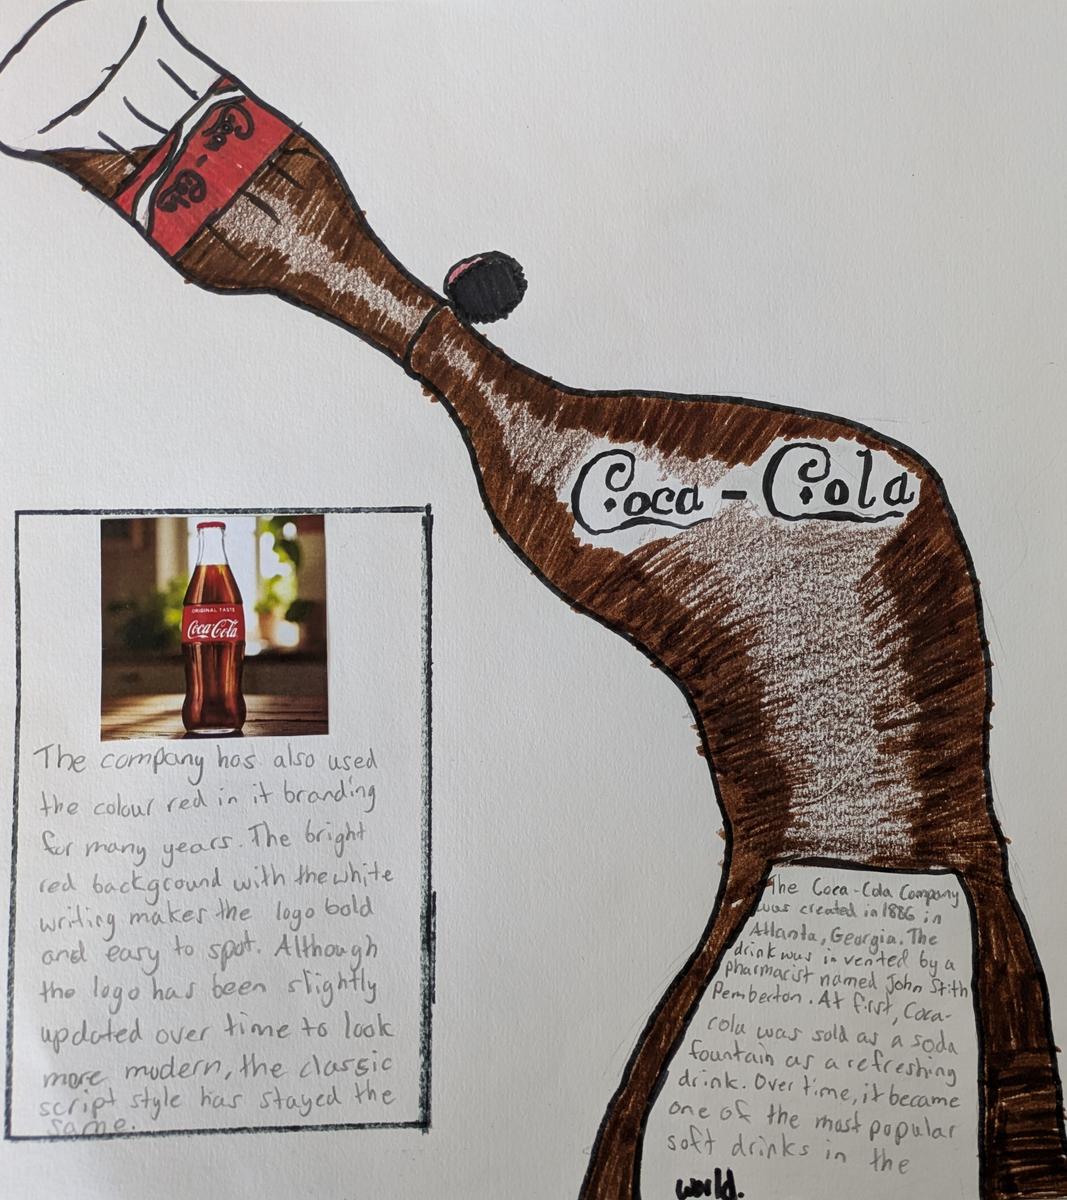 Coca-Cola
Coca - Cola
ORIGINAL TASTE
Coca-Cola
The company has also used
the colour red in it branding
for many years. The bright
red background with the white
writing makes the logo bold
and easy to spot. Although
the logo has been slightly
updated over time to look
more modern, the classic
script style has stayed the
same.
The Coca-Cola Company
was created in 1886 in
Atlanta, Georgia. The
drink was invented by a
pharmacist named John Stith
Pemberton. At first, Coca-
cola was sold as a soda
fountain as a refreshing
drink. Over time, it became
one of the most popular
soft drinks in the
world.